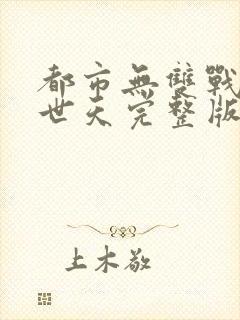 都市無雙戰
世天完整版
上木敬